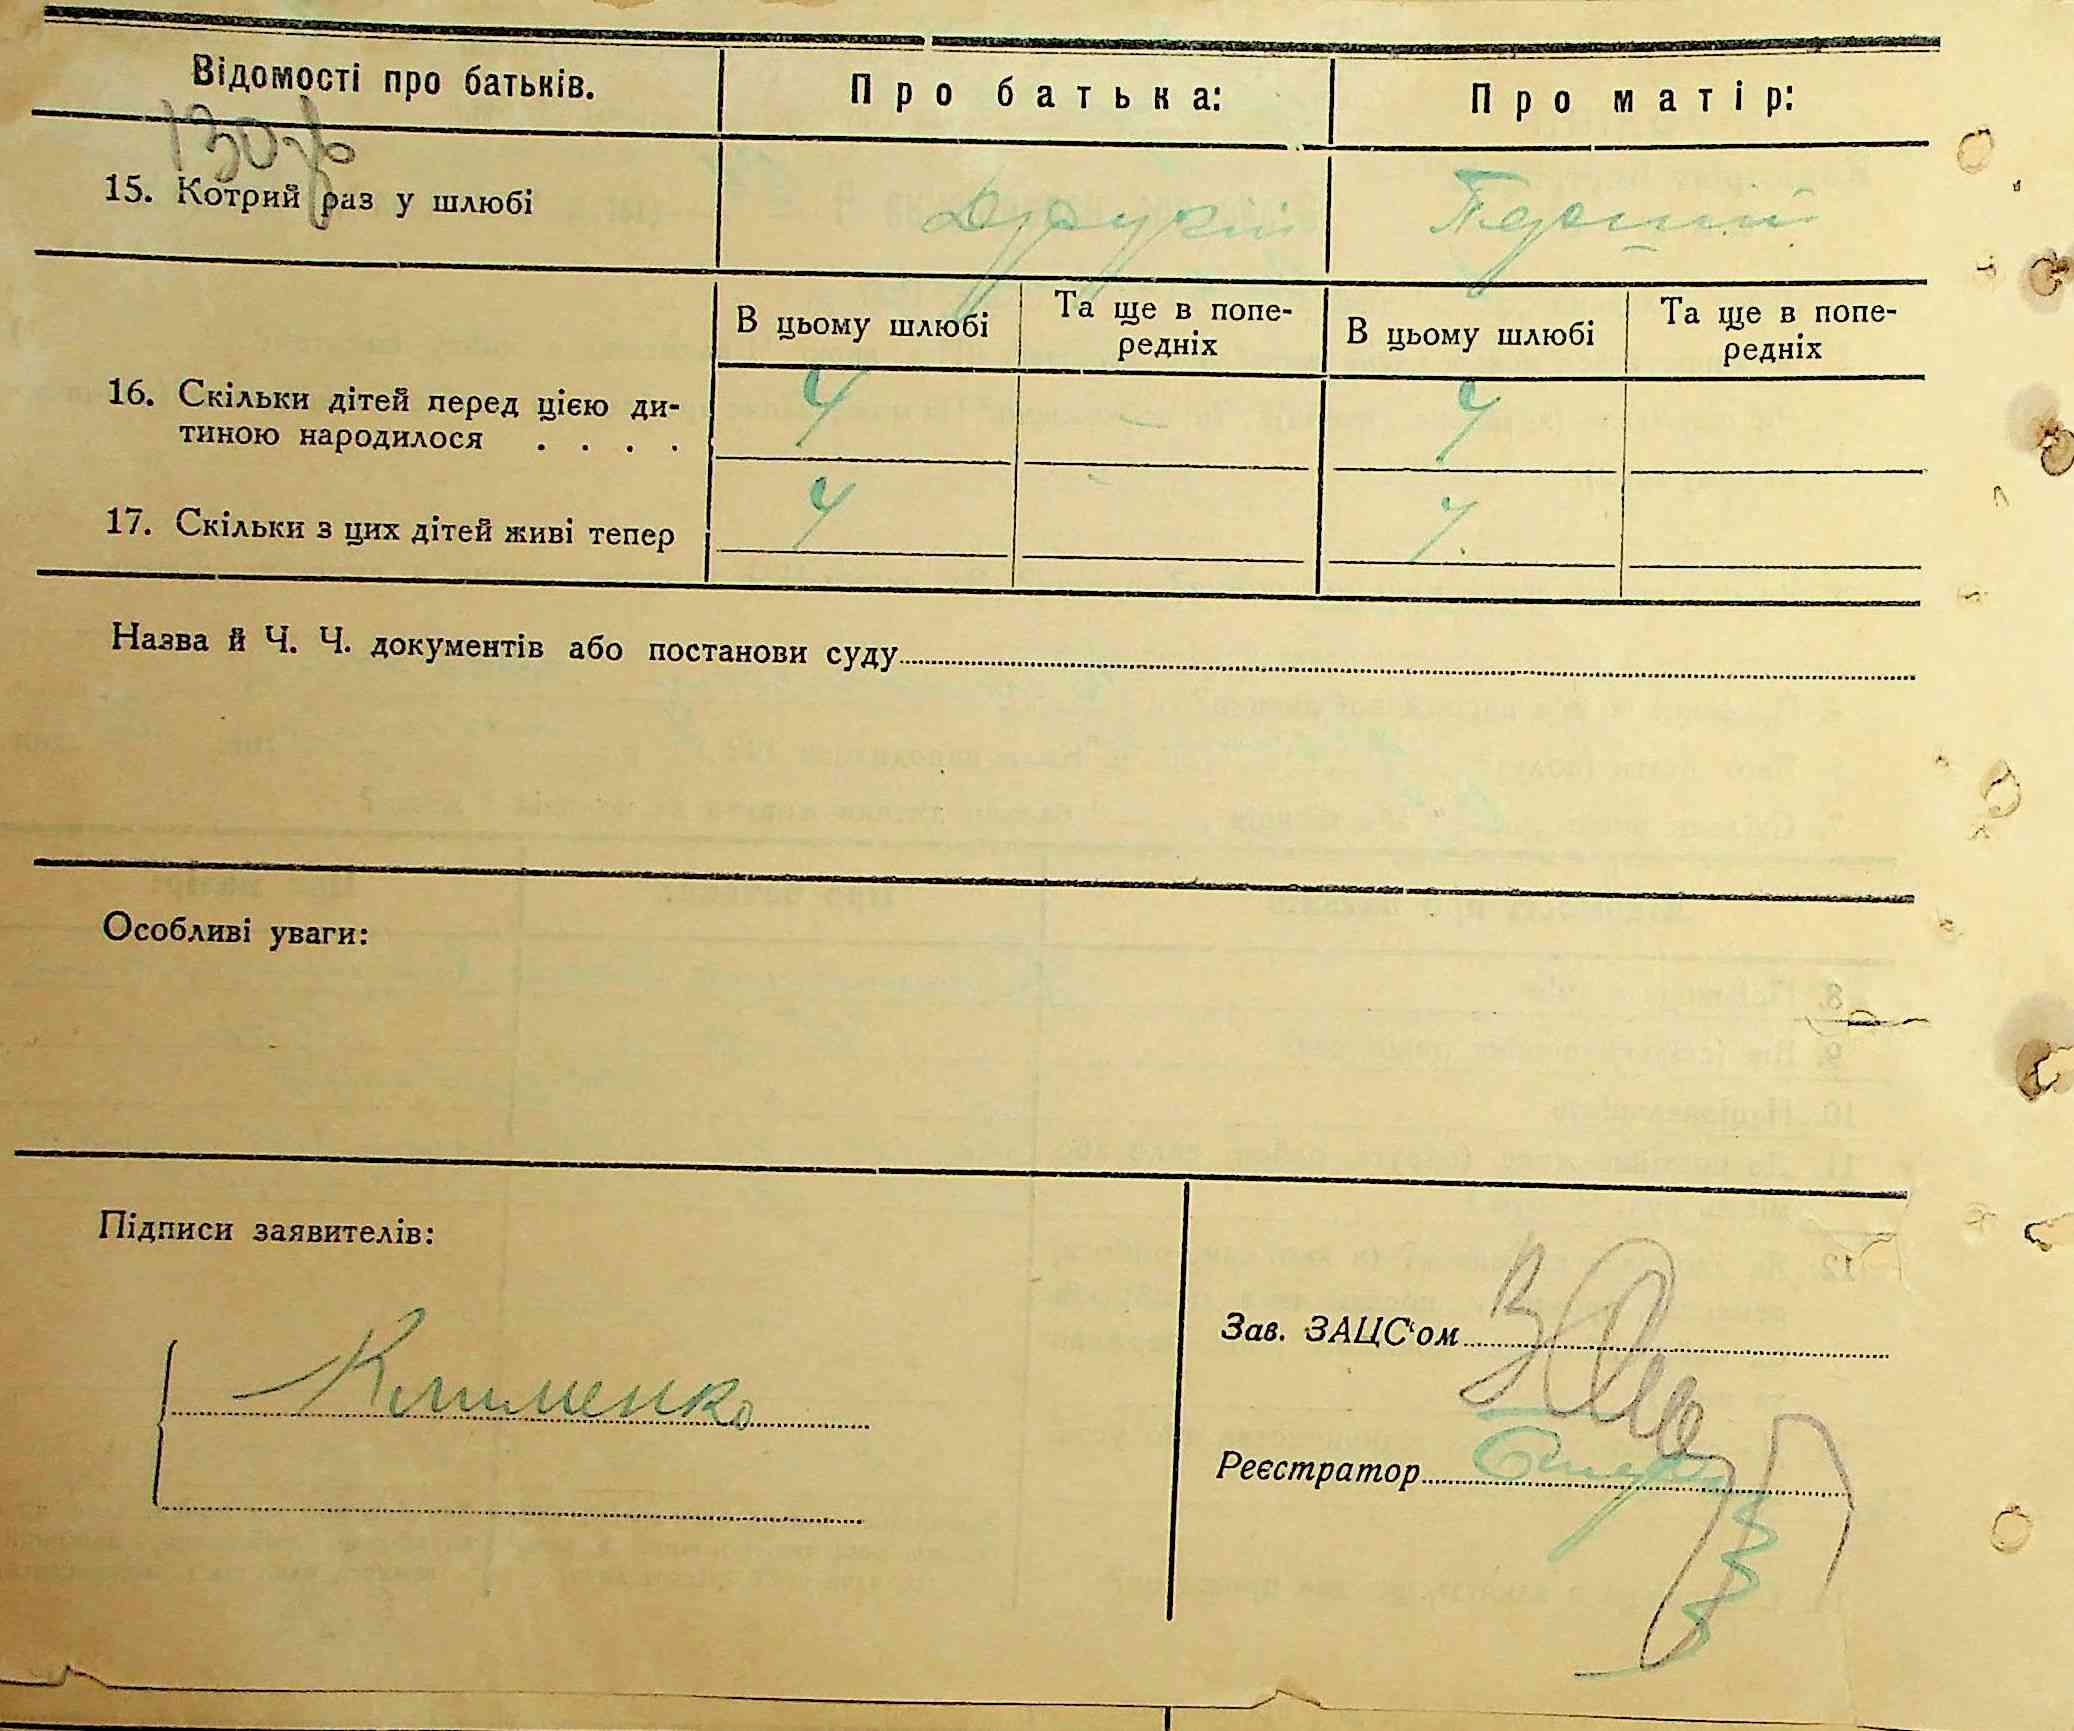 Відомості про батьків. Про батька: Про матір:
15. Котрий раз у шлюбі Другий Перший
В цьому шлюбі Та ще в попе-
редніх В цьому шлюбі Та ще в попе-
редніх
16. Скільки дітей перед цією ди-
тиною народилося . . . . 4 4
17. Скільки з цих дітей живі тепер 4 4
Назва й Ч. Ч. документів або постанови суду
Особливі уваги:
Підписи заявителів:
Клименко
Зав. ЗАЦС‘ом
Реєстратор